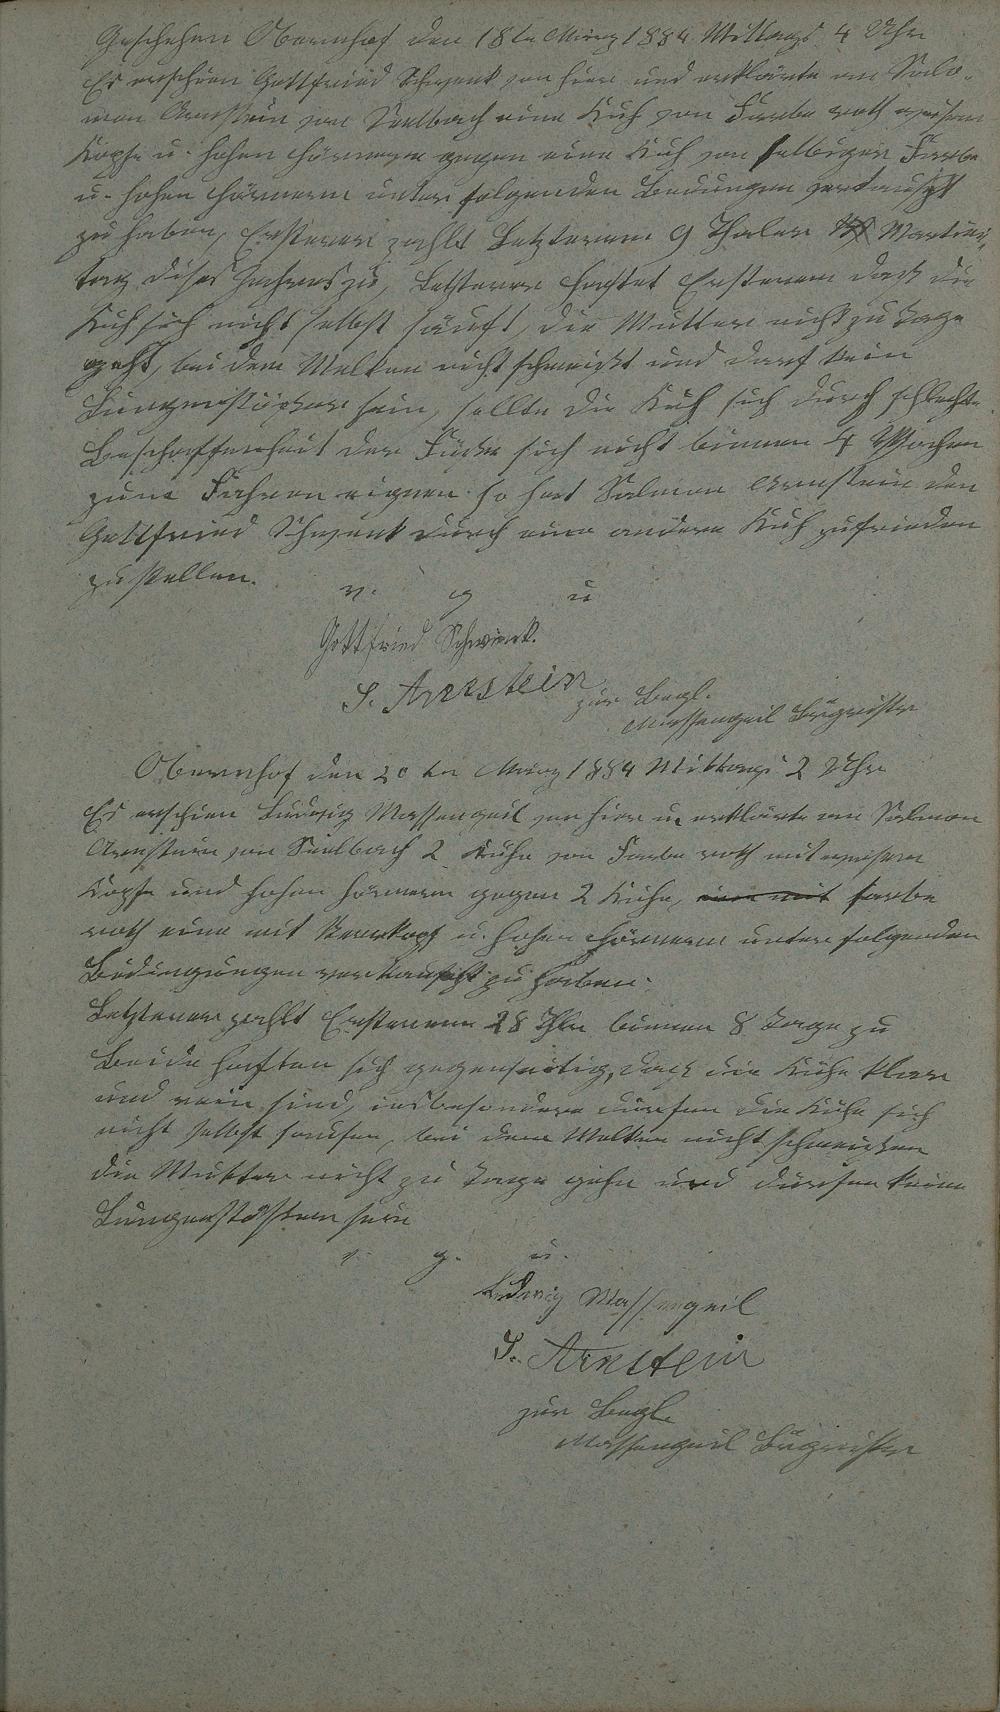 Geschehen Obernhof den 18te März 1884 Mittags 4 Uhr
Es erschien Gottfried Schwenk von hier und erklärte am Salo-
mon Arnstein von Seelbach eine Kuh von Farbe roth weisem
Kopfe u. hohen Hörneren gegen eine Kuh von selbiger Farbe
u. hohen Hörnern unter folgenden vertauscht
zu haben, Ersterer zahlt Letzterem 9 Thaler Martini-
tag dieses Jahres zu, Letzterer haftet Ersterem daß die
Kuh sich nicht selbst säuft, die Mutter nicht zu Tage
geht, bei dem Melken nicht schmeißt und darf kein
sein, sollte die Kuh sich durch schlechte
Beschaffenheit der Füße sich nicht binnen 4 Wochen
zum Fahren eignen so hat Salmon Arnstein den
Gottfried Schwenk durch eine andere Kuh zufrieden
zu stellen.
v. g u
Gottfried Schwenk.
S. Arnstein
zur Begl.
Massengeil Bürgmstr
Obernhof den 20 ten März 1884 Mittags 2 Uhr
Es erschien Ludwig Massengeil von hier u erklärte am Salmon
Arnstein von Seelbach 2 Kühe von Farbe roth mit weisem
Kopfe und hohen Hörnern gegen 2 Kühe, Farbe
roth eine mit u. hohen Hörnern unter folgenden
Bedingungen vertauscht zu haben.
Letzterer zahlt Ersterem 28 Thlr binnen 8 Tage zu
Beide haften sich gegenseitig, daß die Kühe klar
und rein sind, insbesondere dürfen die Kühe sich
nicht selbst saufen, bei dem Melken nicht schmeißen
die Mutter nicht zu Tage gehn und dürfen keine
sein
v. g. u.
Ludwig Massengeil
S. Arnstein
zur Begl.
Massengeil Bürgmstr